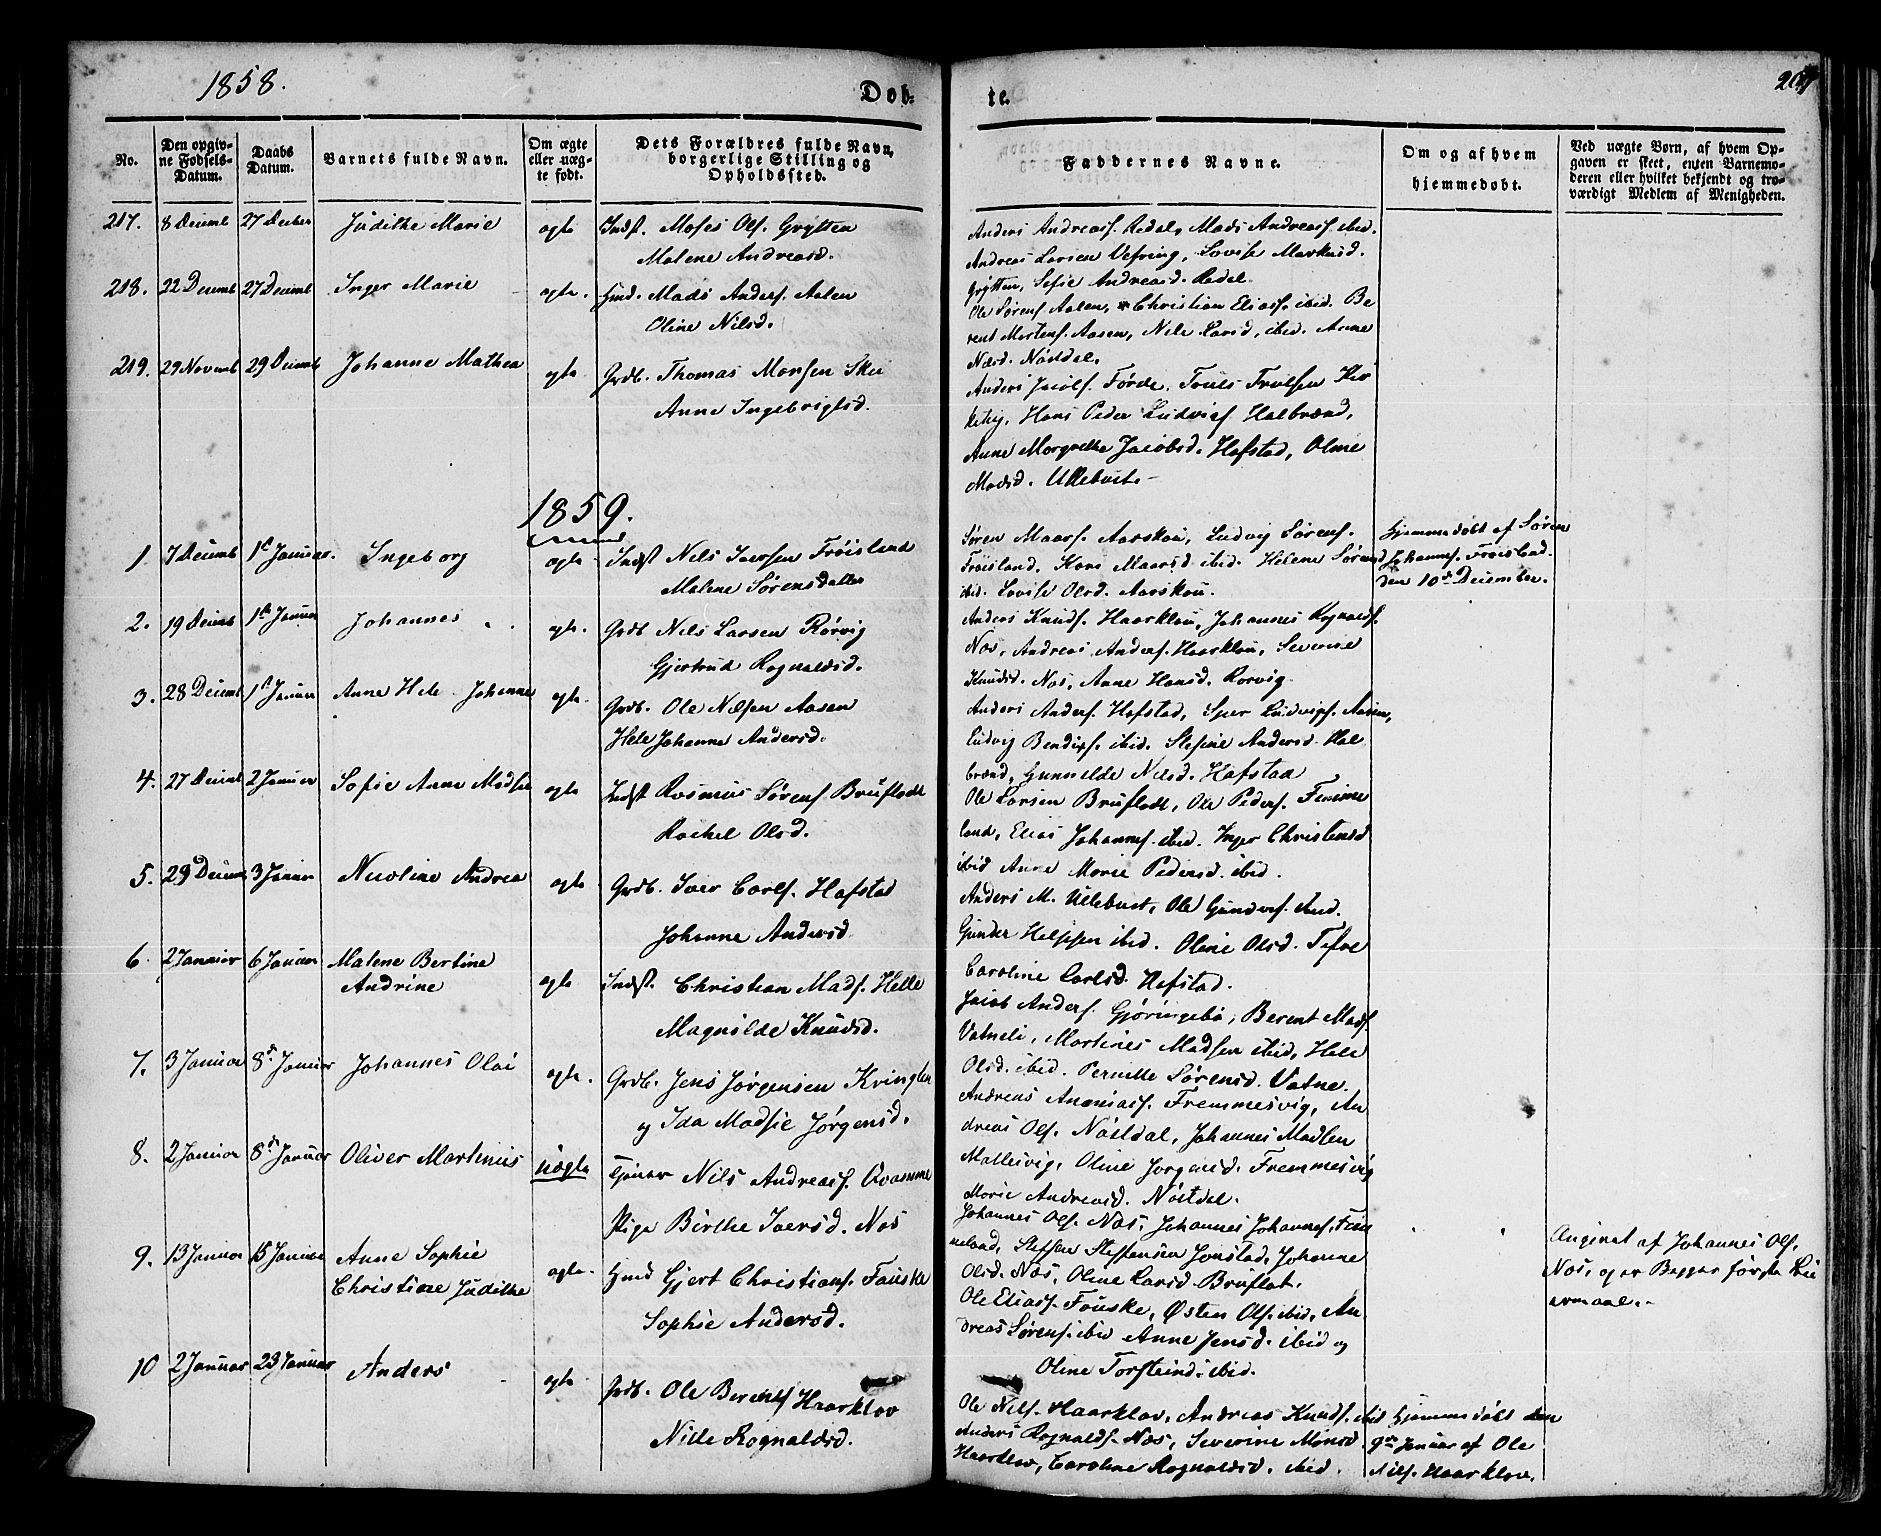 1858.
Døb-
te.
No.
Den opgiv-
ne Fødsels-
Datum.
Daabs
Datum.
Barnets fulde Navn.
Om ægte
eller uæg-
te født.
Dets Forældres fulde Navn,
borgerlige Stilling og
Opholdssted.
Faddernes Navne.
Om og af hvem
hjemmedøbt.
Ved uægte Børn, af hvem Op-
gaven er skeet, enten Barnemo-
deren eller hvilket bekjendt og tro-
værdigt Medlem af Menigheden.
217. 8 Decemb 27 Decber Judithe Marie ægte Indst. Moses Ols. Grytten
Malene Andreasd.
Anders Andreass. Redal, Mads Andreass. ibid.
Andreas Larsen Vefring, Lovise Markusd.
Grytten, Sofie Andreasd. Redal.
218. 22 Decemb 27 Decemb Inger Marie ægte. Hmd. Mads Anders. Aalen
Oline Nilsd.
Ole Sørens Aalen, Christian Eliass. ibid. Be
rent Mortens. Aasen, Nele Larsd. ibid. Anne
Nærd. Nøstdal.
219. 29 Novemb 29 Decemb Johanne Mathea ægte Grdb. Thomas Monsen Skei
Anne Ingebrigtsd.
Anders Jacobs. Førde, Truls Trulsen Kir
keby, Hans Peder Ludvigs. Halbrænd,
Anne Margrethe Jacobsd. Hafstad, Oline
Madsd. Ullebust.-
1859.
1. 7 Decemb 1ste Januar. Ingeborg ægte Indst Nils Iversen Frøisland
Malene Sørensdatter
Søren Maars. Aarskou, Ludvig Sørens.
Frøisland. Kari Maarsd ibid. Helene Sørensd
ibid. Lovise Olsd. Aarskou.
Hjemmedøbt af Søren
Johanness. Frøisland.
den 10de December.
2. 19 Decemb 1ste Januar Johannes ægte. Grdb Nils Larsen Rørvig
Gjertrud Rognaldsd.
Anders Knuds. Haarklau, Johannes Rognalds.
Næs, Andreas Anders. Haarklau, Severine
Knudsd. Næs, Anne Hansd. Rørvig
3. 28 Decemb 1ste Januar Anne Hele Johanne ægte. Grdb. Ole Nilsen Aasen
Hele Johanne Andersd.
Anders Anders. Hafstad, Sjur Ludvigs. Aasen,
Ludvig Bendixs. ibid. Stefine Andersd. Hal
brænd, Gunnelde Nilsd. Hafstad
4. 27 Decemb 2 Januar Sofie Anne Madsie ægte Indst Rasmus Sørens Bruflodt
Rachel Olsd.
Ole Larsen Bruflodt, Ole Peders. Fimme
land, Elias Johanness. ibid. Inger Christensd
ibid Anne Marie Pedersd. ibid.
5. 29 Decemb 3 Januar Nicoline Andrea ægte Grdb. Iver Carls. Hafstad
Johanne Andersd
Anders M. Ullebust, Ole Gunders. ibid.
Gunder Helgesen ibid. Oline Olsd. Tefre
Caroline Carlsd. Hafstad.
6. 2 Januar 6 Januar Malene Bertine
Andrine ægte Indst. Christian Mads. Helle
Magnilde Knudsd.
Jacob Anders. Gjøringebø, Berent Mads.
Vatneli, Martines Madsen ibid, Hele
Olsd. ibid. Pernille Sørensd. Vatne.
7. 3 Januar 8de Januar Johannes Olai ægte. Grdb. Jens Jørgensen Kringlen
og Ida Madsie Jørgensd.
Andreas Ananiass. Fremmesvig, An
dreas Ols. Nøstdal, Johannes Madsen
Mallesvig, Oline Jørgensd. Fremmesvig
Marie Andreasd. Nøstdal.
8. 2 Januar 8de Januar Oliver Martinus uægte Tjener Nils Andreass. Qvamme
Pige Birthe Iversd. Næs
Johannes Ols. Næs, Johannes Johanness. Fim
meland, Steffen Steffensen Jonstad, Johanne
Olsd. Næs, Oline Larsd. Bruflat.
Angivet af Johannes Ols.
Næs, og er Begges første Lei
ermaal.-
9. 13 Januar 15 Januar Anne Sophie
Christine Judithe ægte. Hmd Gjert Christians. Fauske
Sophie Andersd.
Ole Eliass. Fauske, Østen Ols. ibid, An
dreas Sørens. ibid Anne Jensd. ibid og
Oline Torsteind. ibid.
10 2 Januar 23 Januar Anders ægte Grdb. Ole Berents Haarklov
Nille Rognaldsd.
Ole Nils. Haarklov, Andreas Knuds. ibid
Anders Rognalds. Næs, Severine Monsd.
Haarklov, Caroline Rognaldsd. ibid.
Hjemmedøbt den
9de Januar af Ole
Nils. Haarklov.